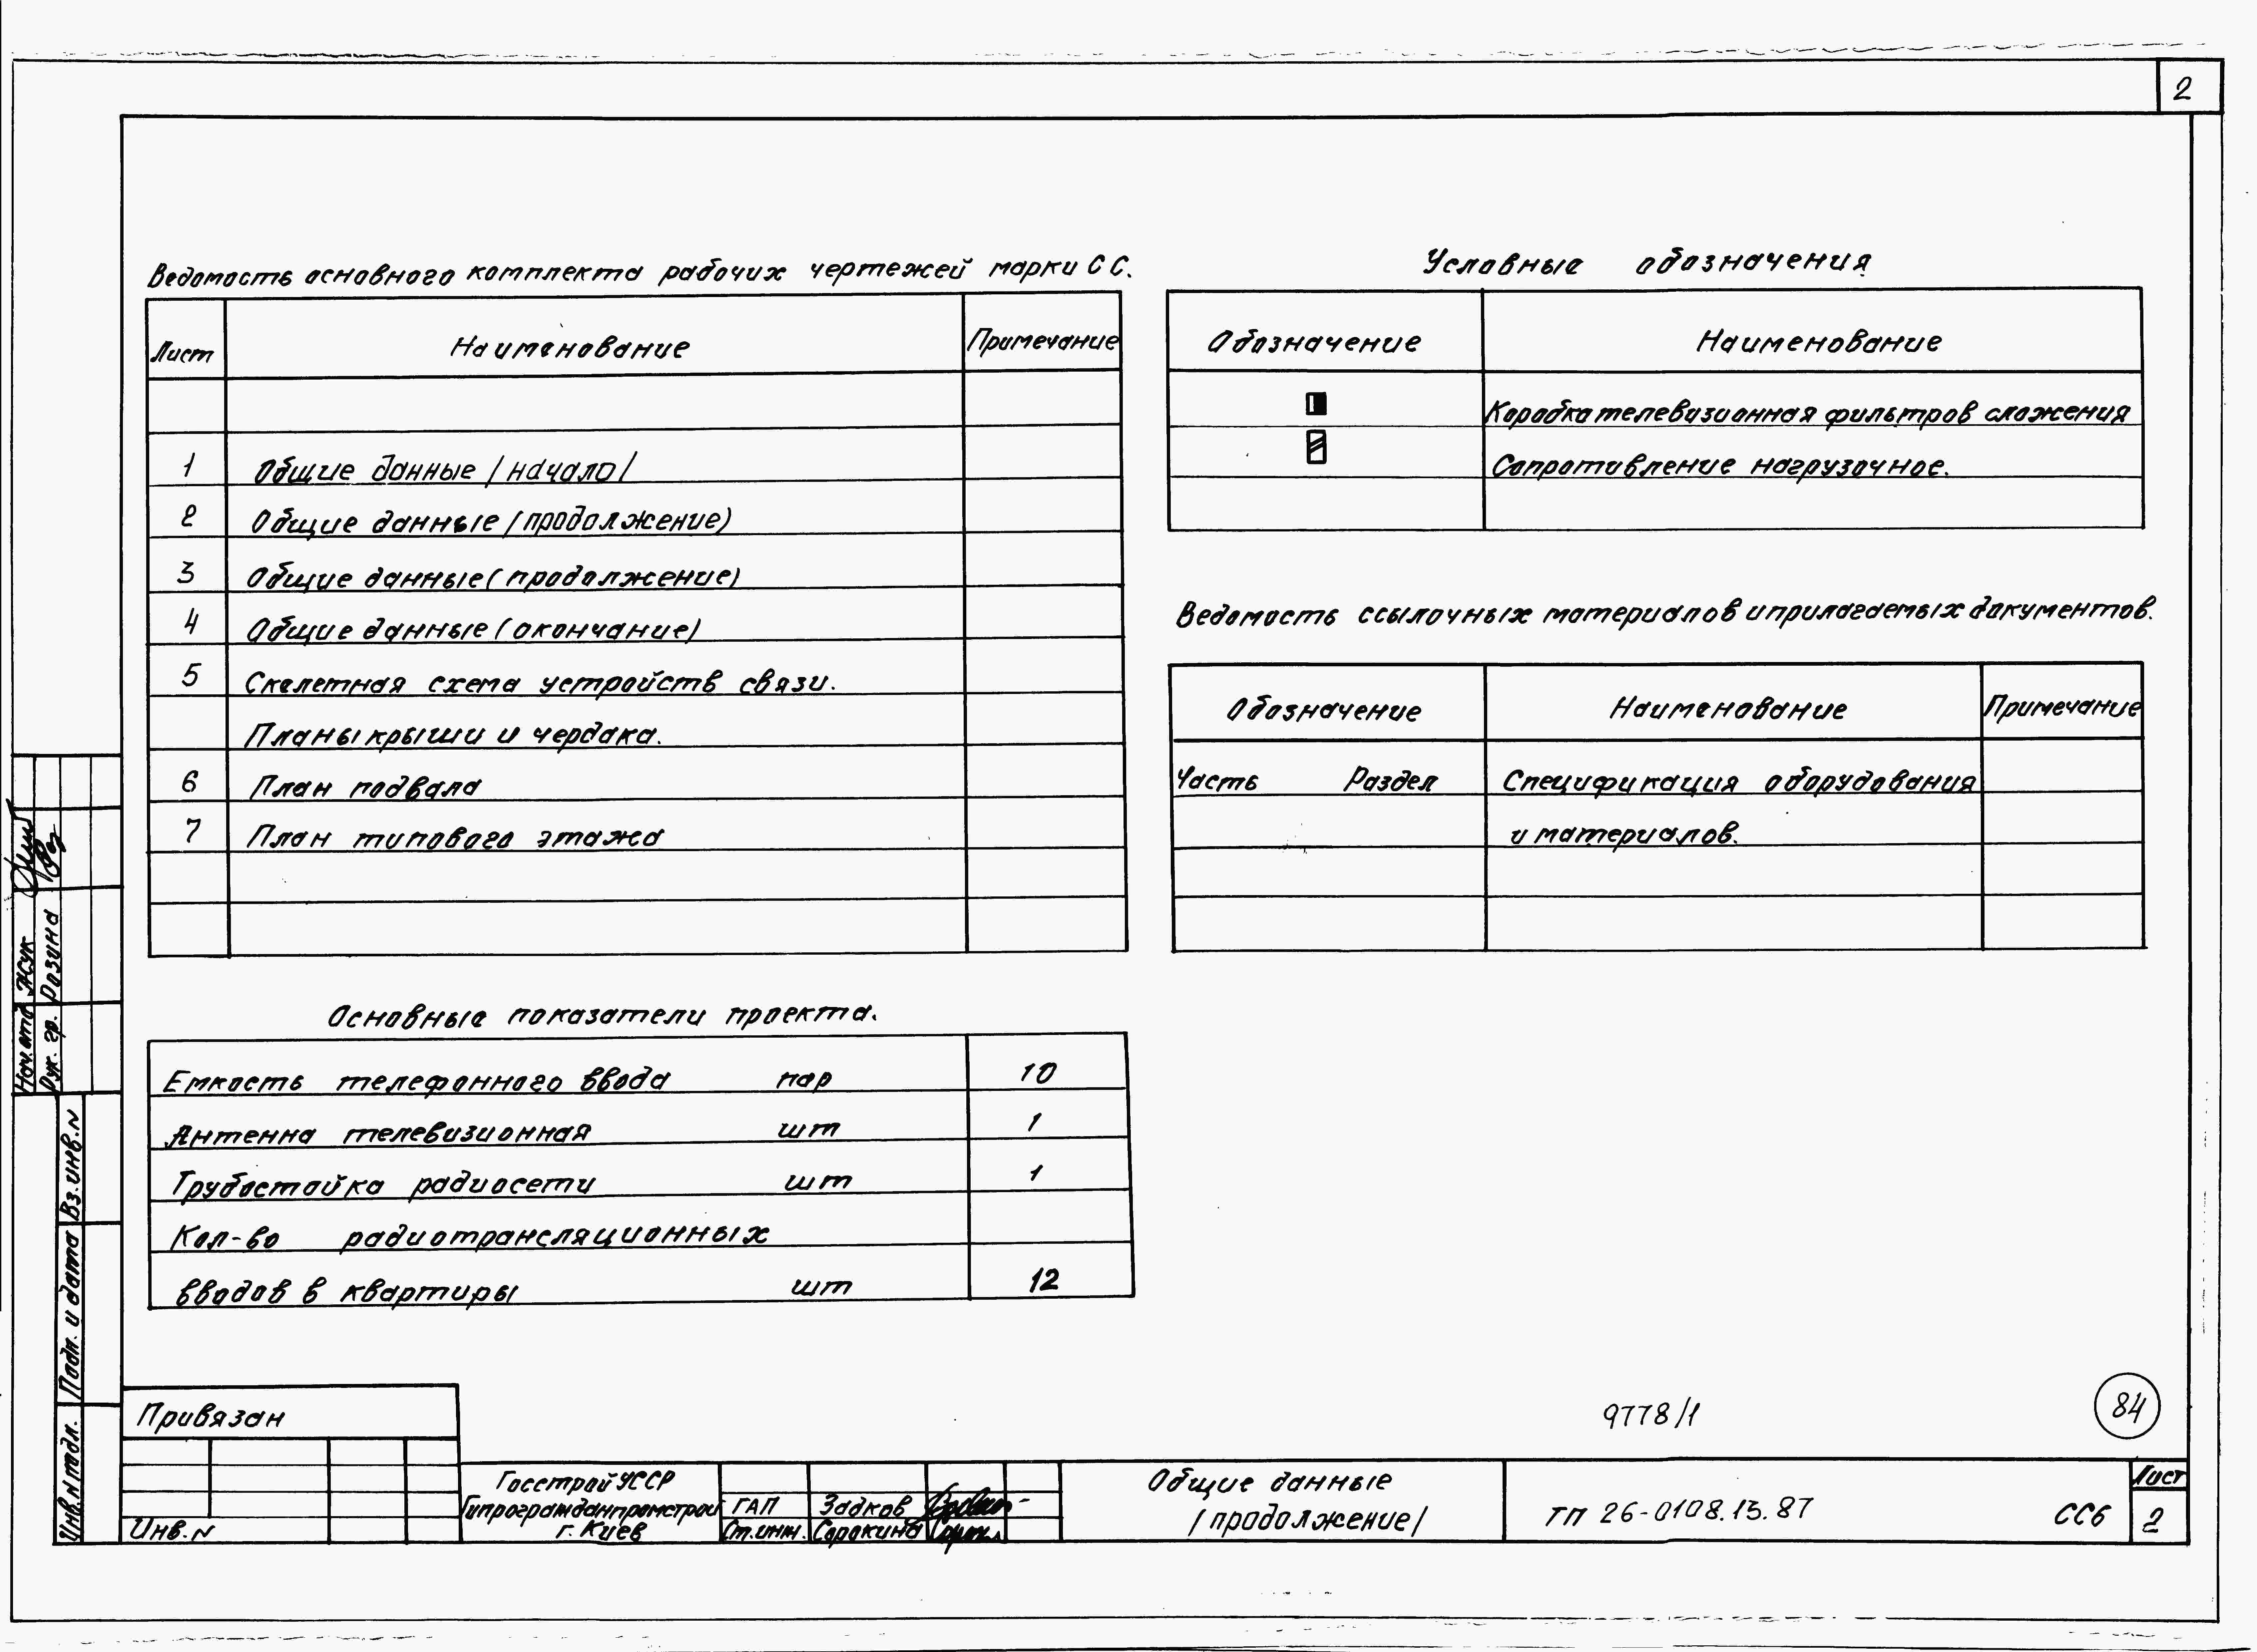 2
Ведомость основного комплекта рабочих чертежей марки СС.
Лист Наименование Примечание
1 Общие данные /начало/
2 Общие данные /продолжение)
3 Общие данные (продолжение)
4 Общие данные (окончание)
5 Скелетная схема устройств связи.
Планы крыши и чердака.
6 План подвала
7 План типового этажа
Основные показатели проекта.
Емкость телефонного ввода пар 10
Антенна телевизионная шт 1
Трубостойка радиосети шт 1
Кол-во радиотрансляционных
вводов в квартиры шт 12
Условные обозначения
Обозначение Наименование
Коробка телевизионная фильтров сложения
Сопротивление нагрузочное.
Ведомость ссылочных материалов и прилагаемых документов.
Обозначение Наименование Примечание
Часть Раздел Спецификация оборудования
и материалов.
Нач.отд Жук
Рук. гр. Розина
Вз.инв.N
Подн. и дата
Инв.N подл.
Привязан
Инв.N
9778/1
84
Госстрой УССР
Гипрогражданпромстрой
г. Киев
ГАП Задков
Ст.инж. Сорокина
Общие данные
/продолжение/
ТП 26-0108.13.87 СС6
Лист
2